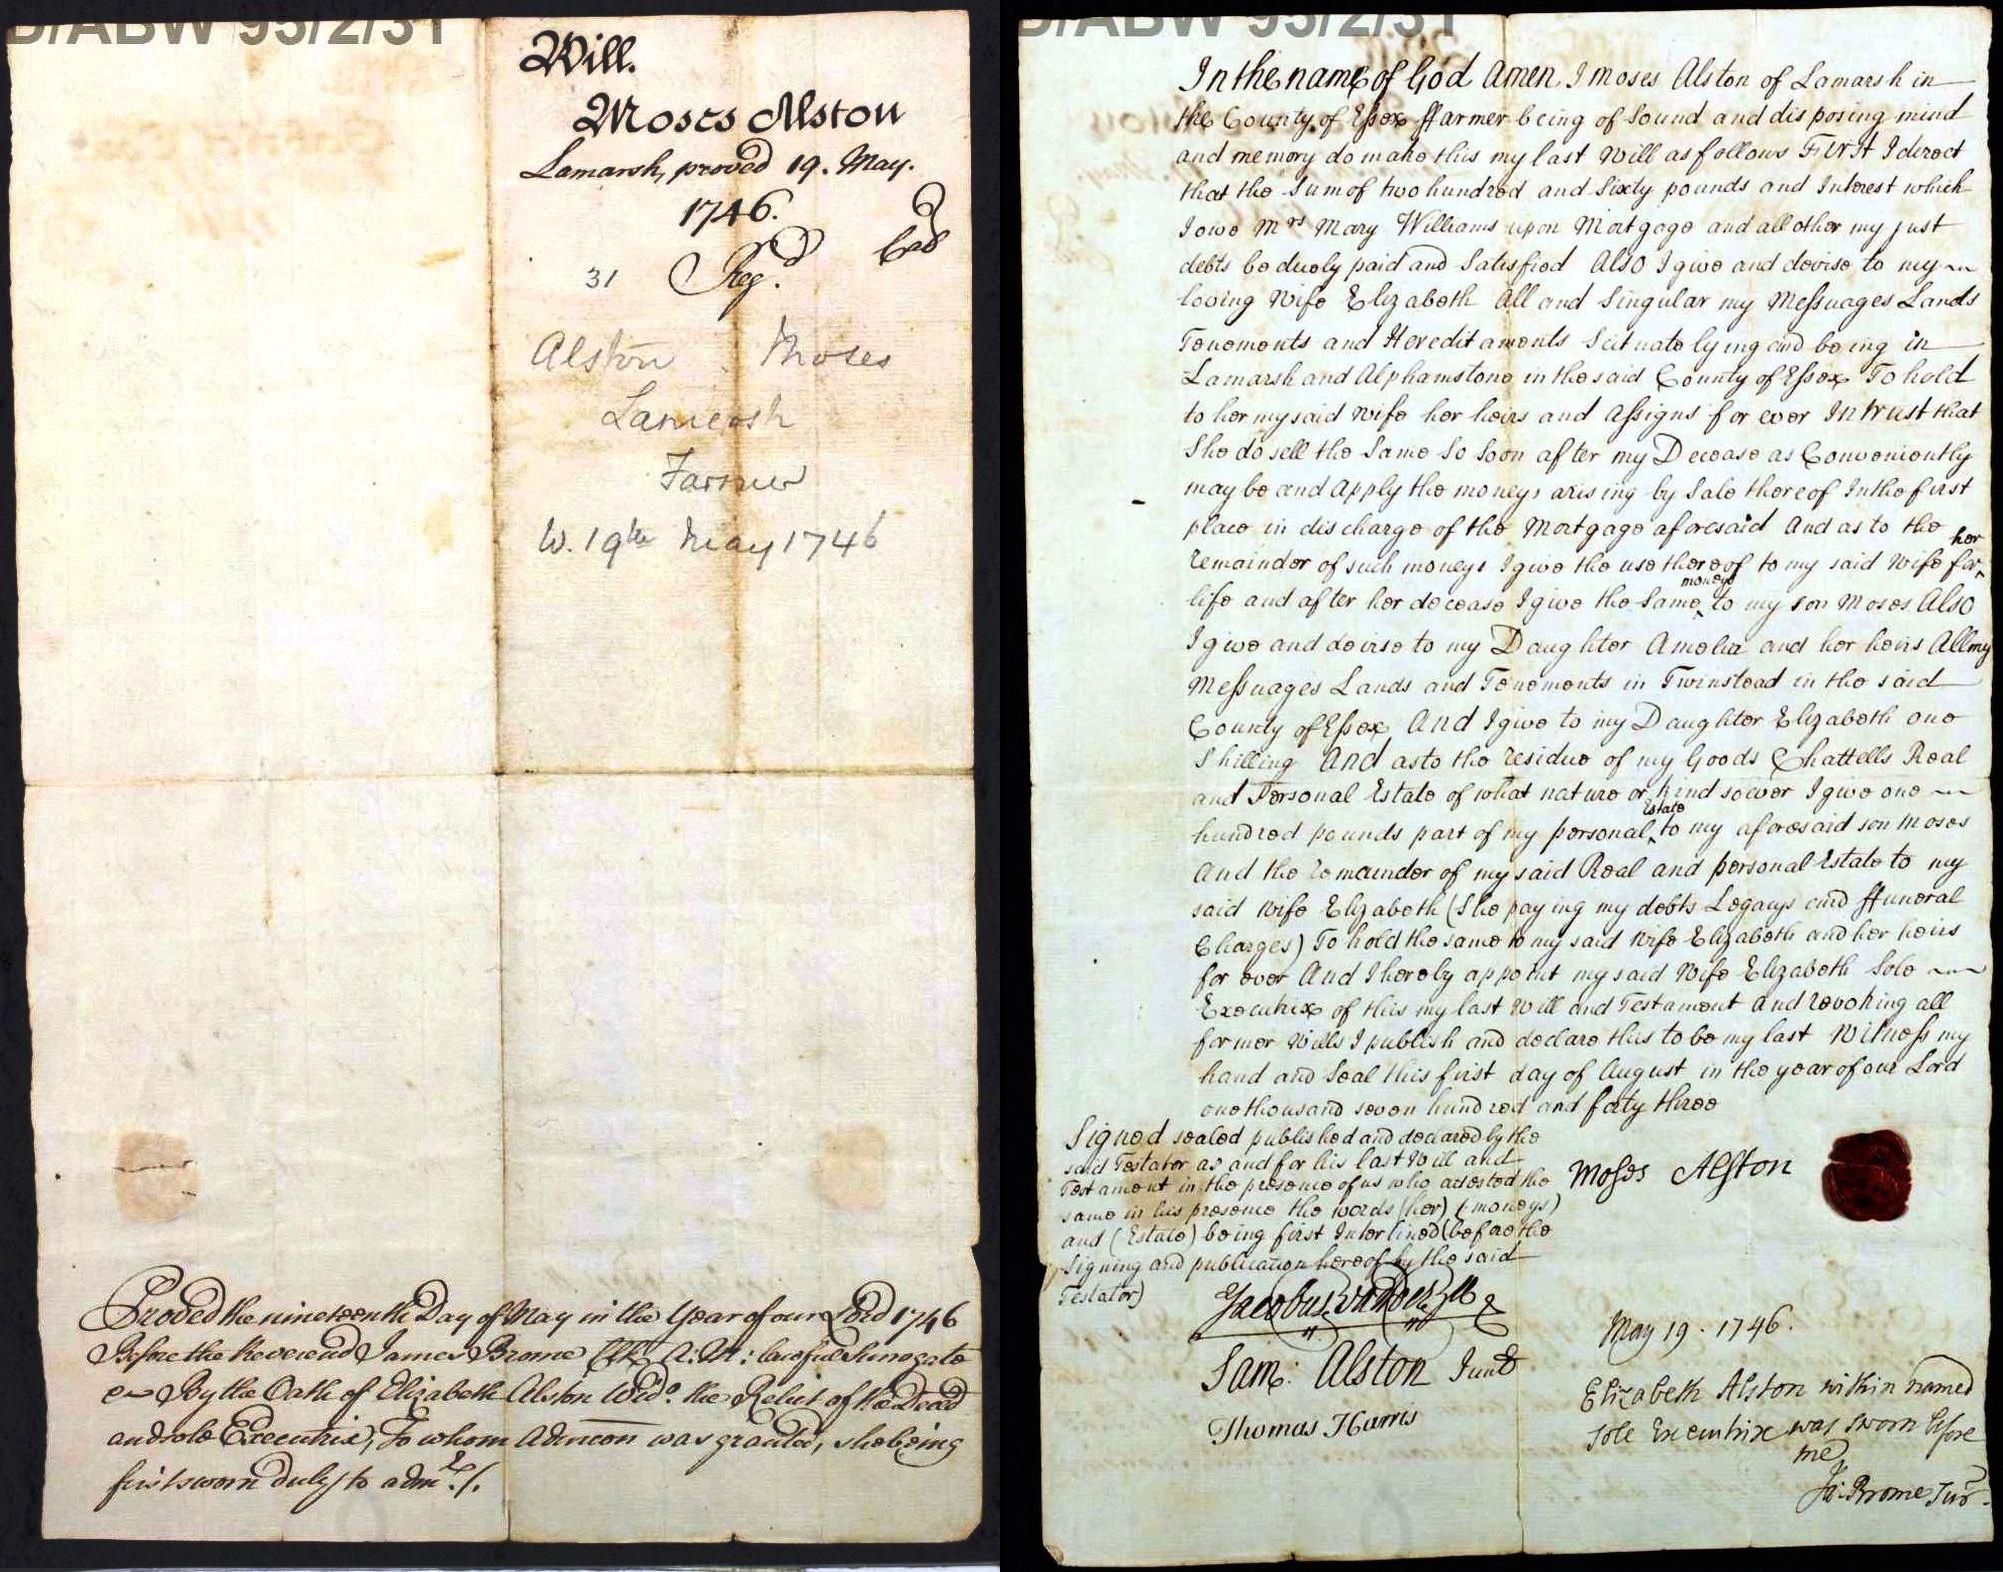 D/ABW 95/2/31
Will.
Moses Alston
Lamarsh, proved 19. May.
1746.
31 Reg.d
Alston Moses
Lamarsh
Farmer
W. 19th May 1746
Proved the nineteenth Day of May in the Year of our Lord 1746
Before the Reverend James Brome Clk A: M: lawfull Surrogate
&c By the Oath of Elizabeth Alston Wid.o the Relict of the Deced
and sole Executrix, To whom Admcon was granted, she being
first sworn duly to admr. /.
D/ABW 95/2/31
In the name of God Amen I Moses Alston of Lamarsh in
the County of Essex ffarmer being of Sound and disposing mind
and memory do make this my last Will as follows First I direct
that the Sum of two hundred and Sixty pounds and Interest which
I owe Mrs Mary Williams upon Mortgage and all other my just
debts be duely paid and Satisfied Also I give and devise to my
loving Wife Elizabeth All and Singular my Messuages Lands
Tenements and Hereditaments Scituate lying and being in
Lamarsh and Alphamstone in the said County of Essex To hold
to her my said Wife her heirs and Assigns for ever In trust that
She do sell the Same So Soon after my Decease as Conveniently
may be and Apply the moneys arising by Sale thereof In the first
place in discharge of the Mortgage aforesaid And as to the
remainder of such moneys I give the use thereof to my said Wife for her
life and after her decease I give the Same moneys to my son Moses Also
I give and devise to my Daughter Amelia and her heirs All my
Messuages Lands and Tenements in Twinstead in the said
County of Essex And I give to my Daughter Elizabeth one
Shilling And as to the residue of my Goods Chattells Real
and Personal Estate of what nature or kind soever I give one
hundred pounds part of my personal Estate to my aforesaid son Moses
And the remainder of my said Real and personal Estate to my
said Wife Elizabeth (She paying my debts Legacys and ffuneral
Charges) To hold the same to my said Wife Elizabeth and her heirs
for ever And I hereby appoint my said Wife Elizabeth Sole
Executrix of this my last Will and Testament And revoking all
former Wills I publish and declare this to be my last Witness my
hand and Seal this first day of August in the year of our Lord
one thousand seven hundred and forty three
Signed sealed published and declared by the
said Testator as and for his last Will and
Testament in the presence of us who attested the
same in his presence the words (her) (moneys)
and (Estate) being first Interlined (before the
Signing and publication hereof by the said
Testator)
Moses Alston
Jacobus Vanderzee
Sam: Alston Junr
Thomas Harris
May 19. 1746.
Elizabeth Alston within named
sole Executrix was sworn before
me
Ja: Brome Sur.